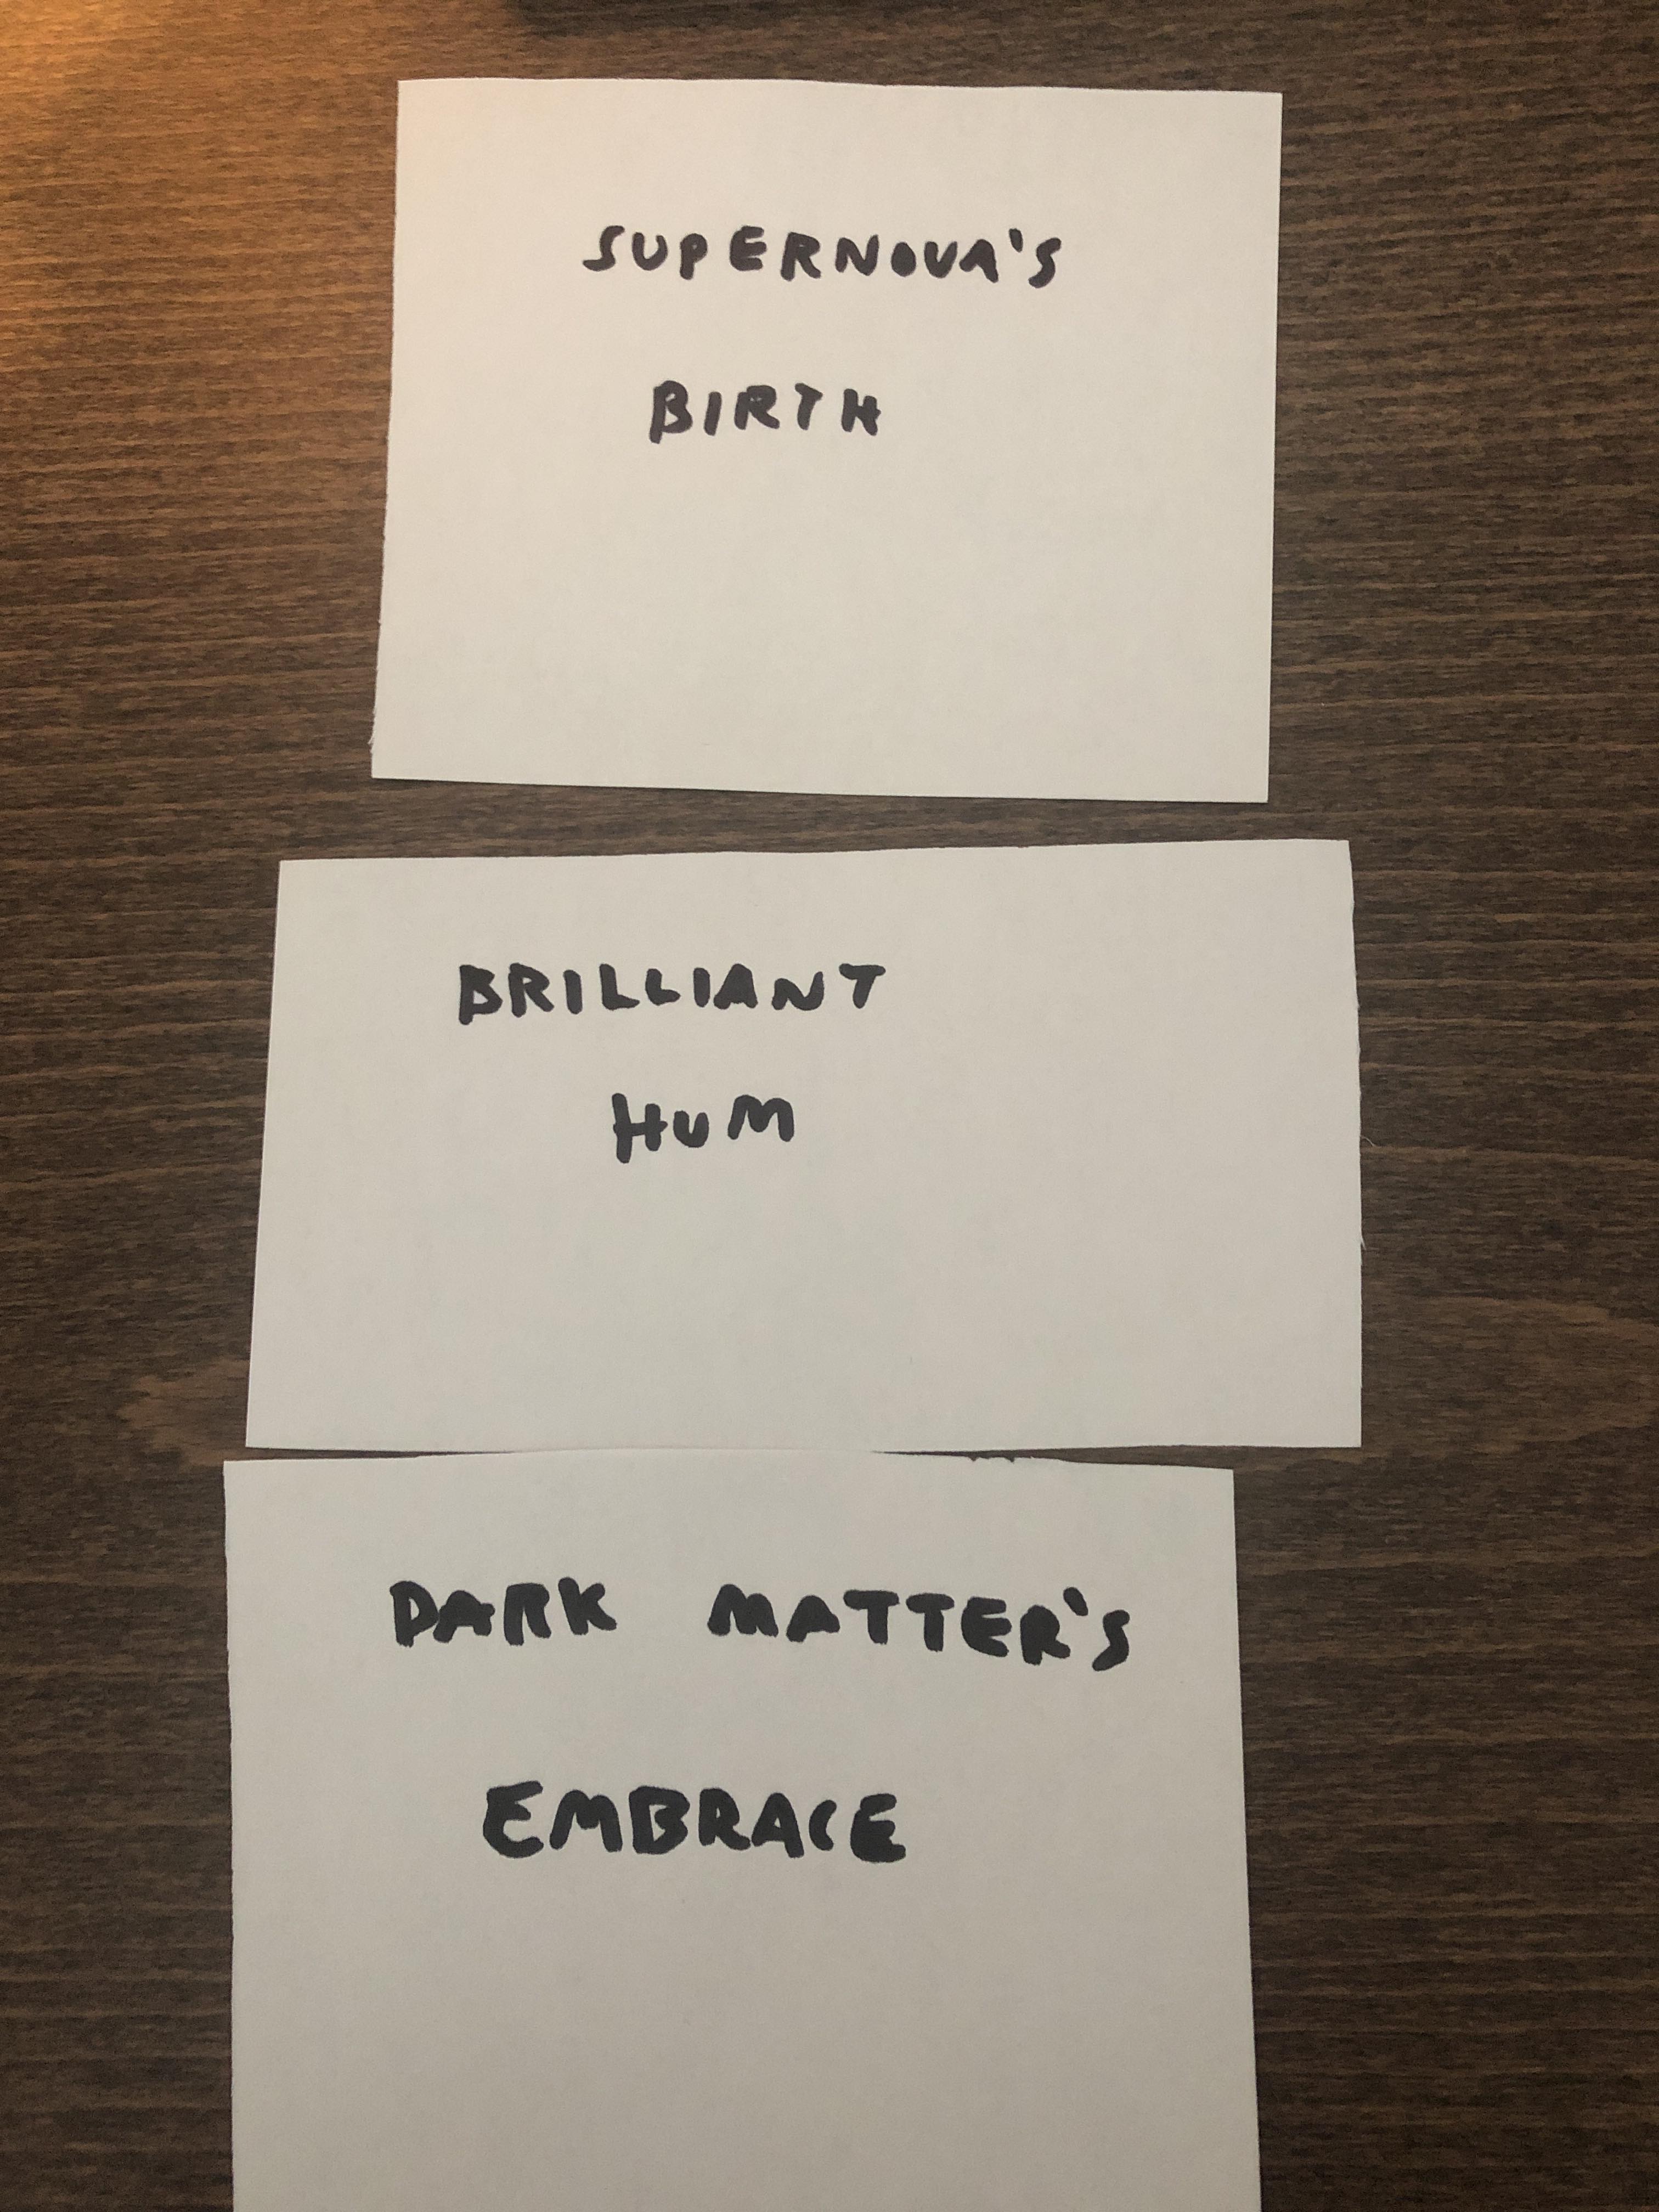 SUPERNOVA'S
BIRTH
BRILLIANT
HUM
DARK MATTER'S
EMBRACE